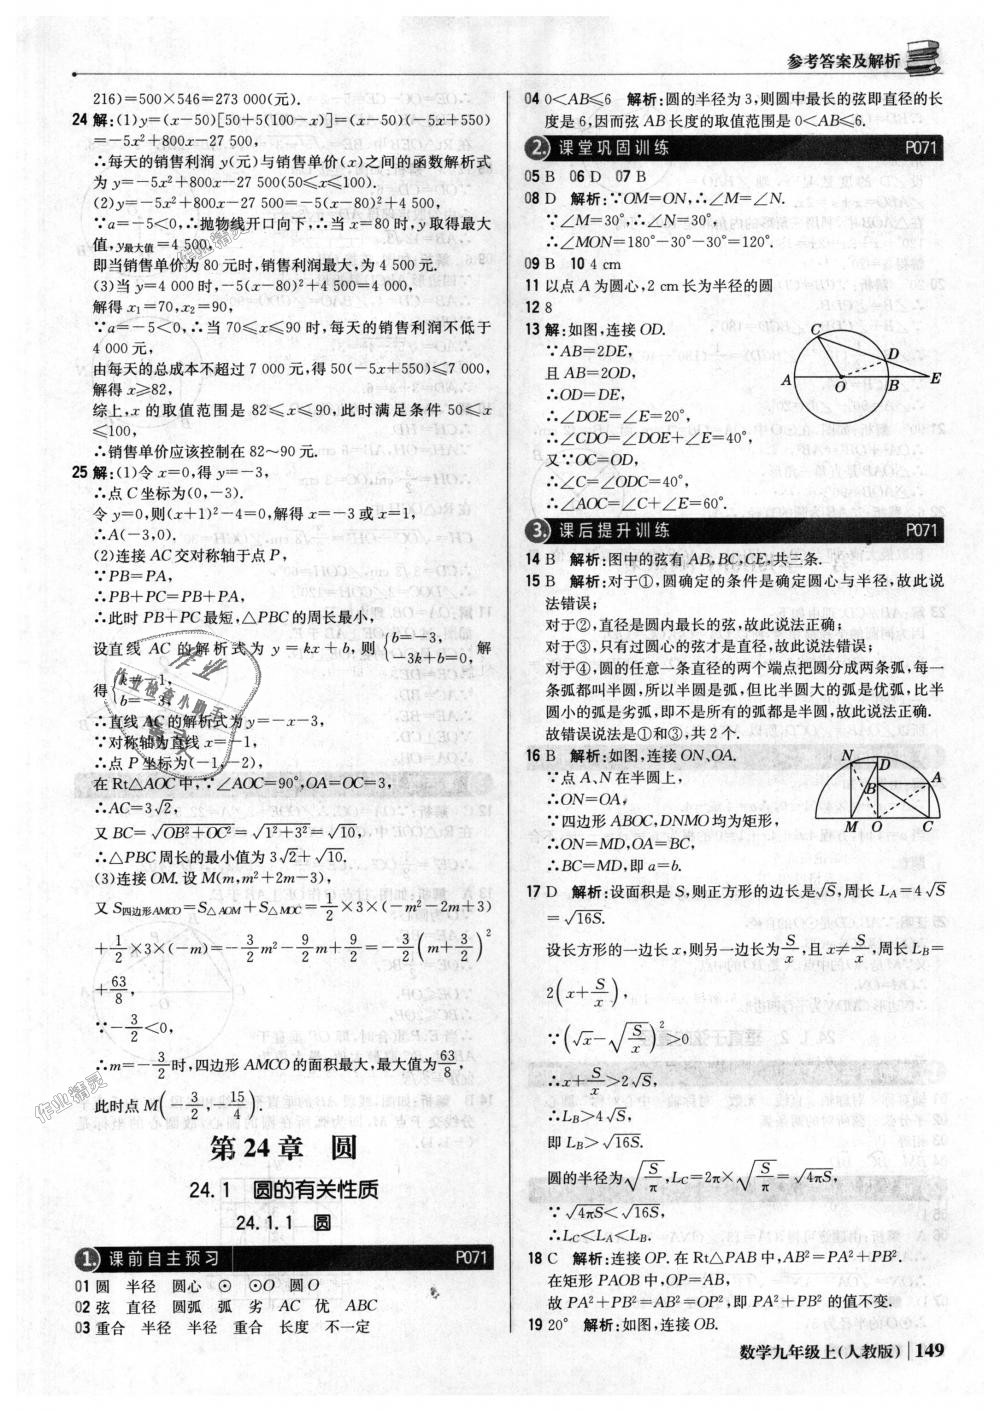 参考答案及解析
216)=500×546=273 000(元).
24 解:(1)y=(x-50)[50+5(100-x)]=(x-50)(-5x+550)
=-5x²+800x-27 500,
∴每天的销售利润 y(元)与销售单价(x)之间的函数解析式
为 y=-5x²+800x-27 500(50≤x≤100).
(2)y=-5x²+800x-27 500=-5(x-80)²+4 500,
∵a=-5<0,∴抛物线开口向下,∴当 x=80 时,y 取得最大
值,y最大值=4 500,
即当销售单价为 80 元时,销售利润最大,为 4 500 元.
(3)当 y=4 000 时,-5(x-80)²+4 500=4 000,
解得 x₁=70,x₂=90,
∵a=-5<0,∴当 70≤x≤90 时,每天的销售利润不低于
4 000 元,
由每天的总成本不超过 7 000 元,得 50(-5x+550)≤7 000,
解得 x≥82,
综上,x 的取值范围是 82≤x≤90,此时满足条件 50≤x
≤100,
∴销售单价应该控制在 82~90 元.
25 解:(1)令 x=0,得 y=-3,
∴点 C 坐标为(0,-3).
令 y=0,则(x+1)²-4=0,解得 x=-3 或 x=1,
∴A(-3,0).
(2)连接 AC 交对称轴于点 P,
∵PB=PA,
∴PB+PC=PB+PA,
∴此时 PB+PC 最短,△PBC 的周长最小,
设直线 AC 的解析式为 y=kx+b,则{b=-3, -3k+b=0, 解
得{k=-1, b=-3,
∴直线 AC 的解析式为 y=-x-3,
∵对称轴为直线 x=-1,
∴点 P 坐标为(-1,-2),
在 Rt△AOC 中,∵∠AOC=90°,OA=OC=3,
∴AC=3√2,
又 BC=√(OB²+OC²)=√(1²+3²)=√10,
∴△PBC 周长的最小值为 3√2+√10.
(3)连接 OM. 设 M(m,m²+2m-3),
又 S四边形AMCO=S△AOM+S△MOC=1/2×3×(-m²-2m+3)
+1/2×3×(-m)=-3/2m²-9/2m+9/2=-3/2(m+3/2)²
+63/8,
∵-3/2<0,
∴m=-3/2时,四边形 AMCO 的面积最大,最大值为63/8,
此时点 M(-3/2,-15/4).
第 24 章 圆
24.1 圆的有关性质
24.1.1 圆
1. 课前自主预习 P071
01 圆 半径 圆心 ⊙ ⊙O 圆 O
02 弦 直径 圆弧 弧 劣 AC 优 ABC
03 重合 半径 半径 重合 长度 不一定
04 0<AB≤6 解析:圆的半径为 3,则圆中最长的弦即直径的长
度是 6,因而弦 AB 长度的取值范围是 0<AB≤6.
2. 课堂巩固训练 P071
05 B 06 D 07 B
08 D 解析:∵OM=ON,∴∠M=∠N.
∵∠M=30°,∴∠N=30°,
∴∠MON=180°-30°-30°=120°.
09 B 10 4 cm
11 以点 A 为圆心,2 cm 长为半径的圆
12 8
13 解:如图,连接 OD.
∵AB=2DE,
且 AB=2OD,
∴OD=DE,
∴∠DOE=∠E=20°,
∴∠CDO=∠DOE+∠E=40°,
又∵OC=OD,
∴∠C=∠ODC=40°,
∴∠AOC=∠C+∠E=60°.
C
D
A
O
B
E
3. 课后提升训练 P071
14 B 解析:图中的弦有 AB,BC,CE,共三条.
15 B 解析:对于①,圆确定的条件是确定圆心与半径,故此说
法错误;
对于②,直径是圆内最长的弦,故此说法正确;
对于③,只有过圆心的弦才是直径,故此说法错误;
对于④,圆的任意一条直径的两个端点把圆分成两条弧,每一
条弧都叫半圆,所以半圆是弧,但比半圆大的弧是优弧,比半
圆小的弧是劣弧,即不是所有的弧都是半圆,故此说法正确.
故错误说法是①和③,共 2 个.
16 B 解析:如图,连接 ON、OA.
∵点 A、N 在半圆上,
∴ON=OA,
∵四边形 ABOC,DNMO 均为矩形,
∴ON=MD,OA=BC,
∴BC=MD,即 a=b.
N
D
B
A
M
O
C
17 D 解析:设面积是 S,则正方形的边长是√S,周长 L_A=4√S
=√16S.
设长方形的一边长 x,则另一边长为S/x,且 x≠S/x,周长 L_B=
2(x+S/x),
∵(√x-√(S/x))²>0
∴x+S/x>2√S,
∴L_B>4√S,
即 L_B>√16S.
圆的半径为√(S/π),L_C=2π×√(S/π)=√4πS,
∵√4πS<√16S,
∴L_C<L_A<L_B.
18 C 解析:连接 OP. 在 Rt△PAB 中,AB²=PA²+PB².
在矩形 PAOB 中,OP=AB,
故 PA²+PB²=AB²=OP²,即 PA²+PB² 的值不变.
19 20° 解析:如图,连接 OB.
数学九年级上(人教版) 149